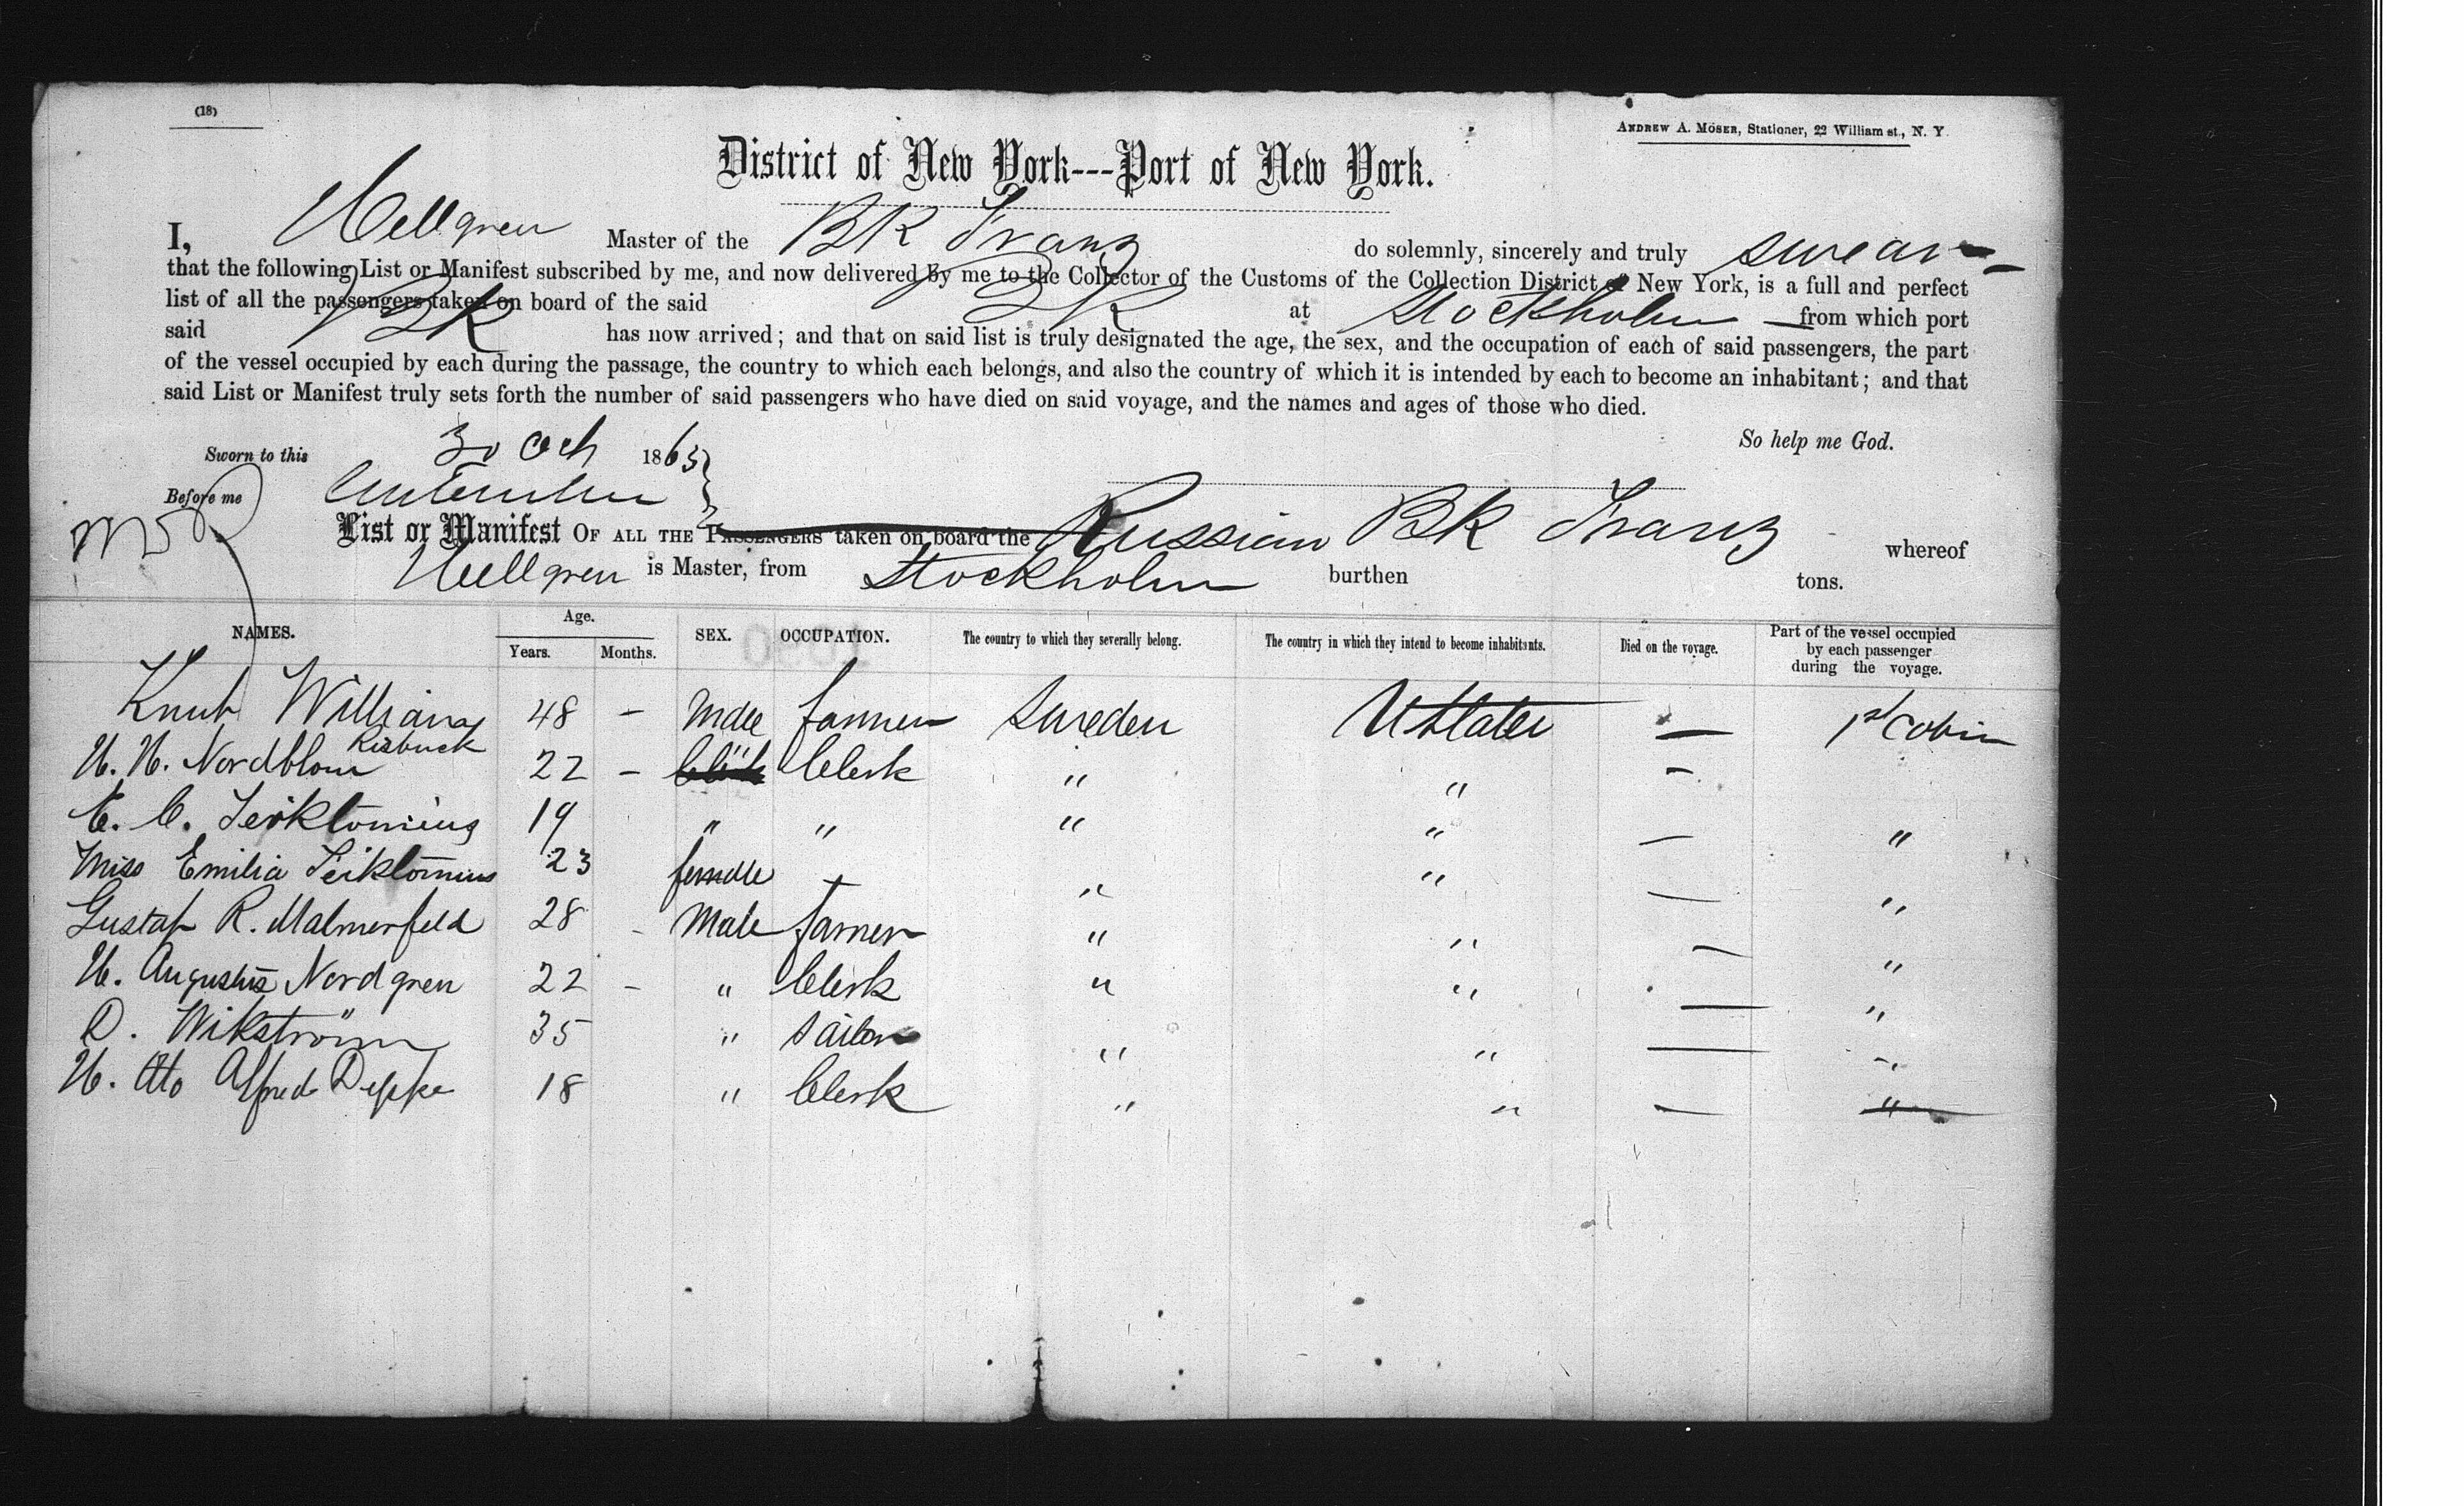 (18)
ANDREW A. MOSER, Stationer, 22 William st., N. Y.
District of New York---Port of New York.
I, Hellgren Master of the BK Franz do solemnly, sincerely and truly swear
that the following List or Manifest subscribed by me, and now delivered by me to the Collector of the Customs of the Collection District of New York, is a full and perfect
list of all the passengers taken on board of the said BK at Stockholm from which port
said BK has now arrived; and that on said list is truly designated the age, the sex, and the occupation of each of said passengers, the part
of the vessel occupied by each during the passage, the country to which each belongs, and also the country of which it is intended by each to become an inhabitant; and that
said List or Manifest truly sets forth the number of said passengers who have died on said voyage, and the names and ages of those who died.
So help me God.
Sworn to this 30 Oct 1863
Before me
List or Manifest OF ALL THE PASSENGERS taken on board the Russian BK Franz whereof
Hellgren is Master, from Stockholm burthen tons.
NAMES. Age. Years. Months. SEX. OCCUPATION. The country to which they severally belong. The country in which they intend to become inhabitants. Died on the voyage. Part of the vessel occupied by each passenger during the voyage.
Knut William 48 - Male farmer Sweden U States — 1st Cabin
Risbuck
H. H. Nordblom 22 - Clerk " " -
E. C. 19 " " " " — "
Miss Emilia 23 female - " " — "
Gustaf R. Malmerfeld 28 - Male farmer " " — "
H. Augustus Nordgren 22 - " Clerk " " — "
D. Wikström 35 " Sailor " " — "
H. Otto Alfred Depke 18 " Clerk " " — "